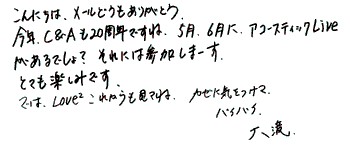 こんにちは、メールどうもありがとう。
今年、C&Aも20周年ですね。5月、6月に、アコースティックLive
があるでしょ？それには参加しまーす。
とても楽しみです。
では、Love² これからも見てね。かぜに気をつけて。
バイバイ。